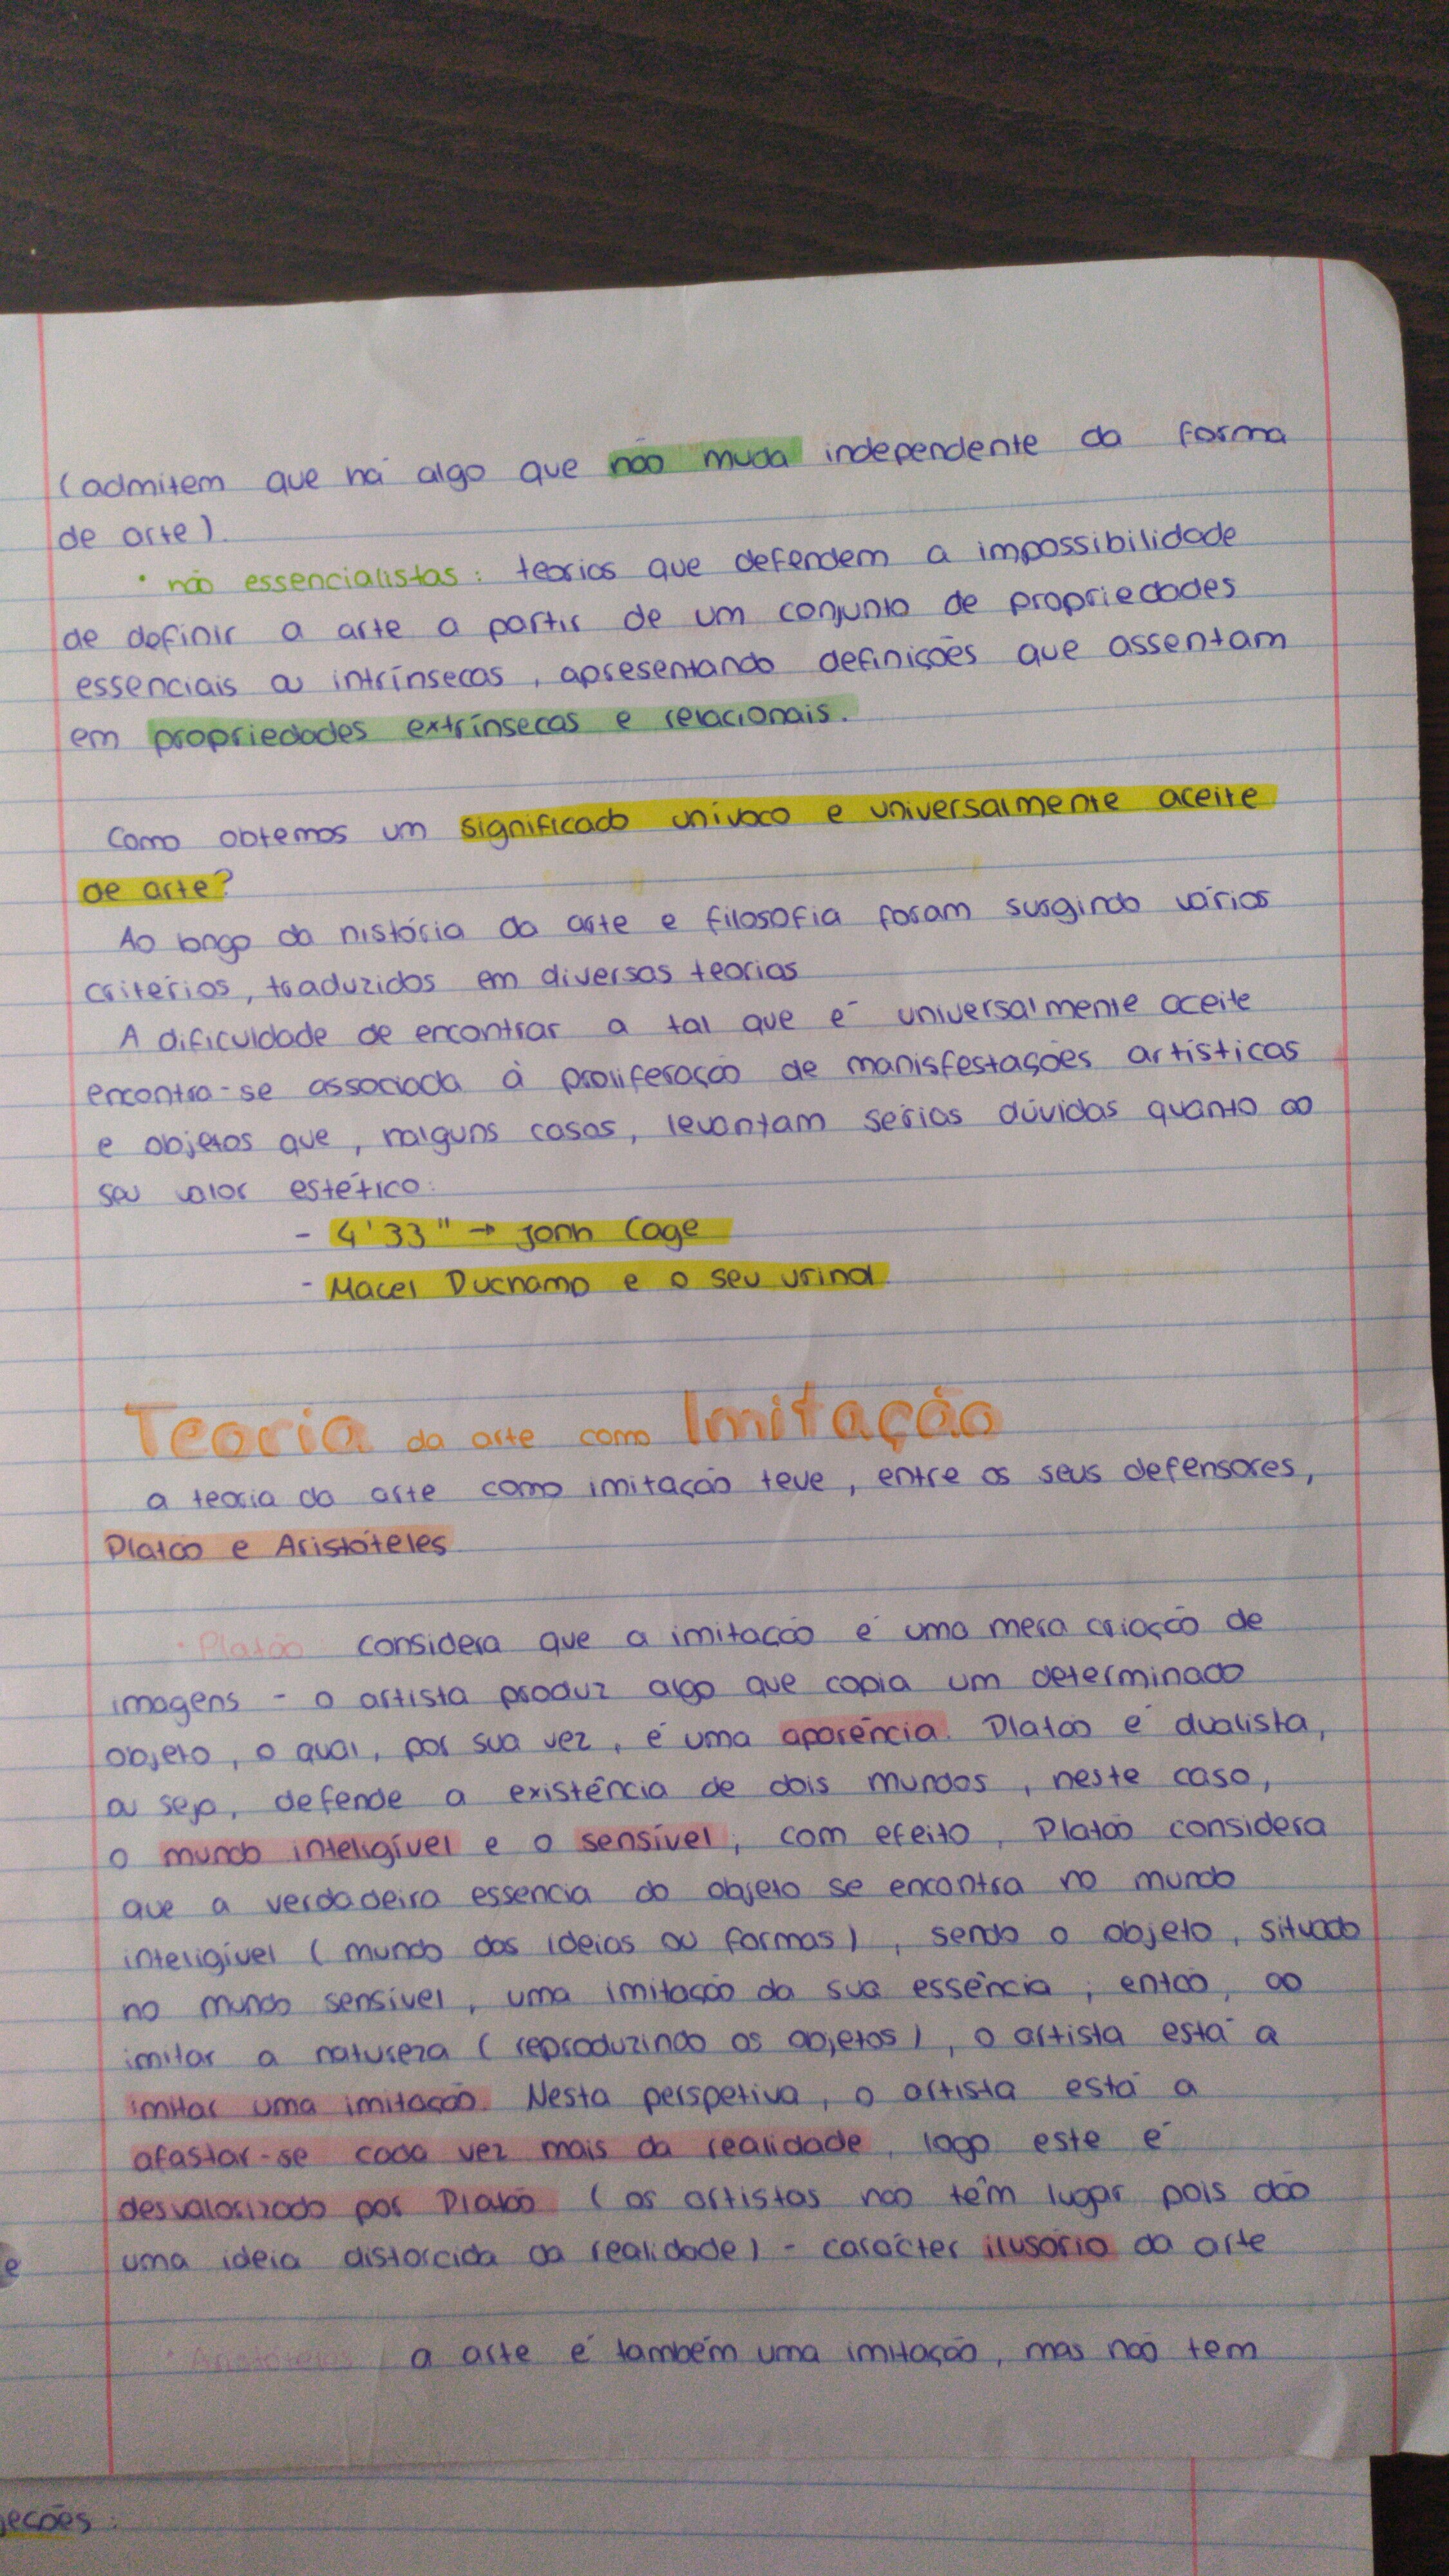 (admitem que há algo que não muda independente da forma
de arte).
• não essencialistas: teorias que defendem a impossibilidade
de definir a arte a partir de um conjunto de propriedades
essenciais ou intrínsecas, apresentando definições que assentam
em propriedades extrínsecas e relacionais.
Como obtemos um significado unívoco e universalmente aceite
de arte?
Ao longo da história da arte e filosofia foram surgindo vários
critérios, traduzidos em diversas teorias
A dificuldade de encontrar a tal que é universalmente aceite
encontra-se associada à proliferação de manisfestações artísticas
e objetos que, nalguns casos, levantam sérias dúvidas quanto ao
seu valor estético:
- 4'33" → Jonh Cage
- Macel Duchamp e o seu urinol
Teoria da arte como Imitação
a teoria da arte como imitação teve, entre os seus defensores,
Platão e Aristóteles
• Platão: considera que a imitação é uma mera criação de
imagens - o artista produz algo que copia um determinado
objeto, o qual, por sua vez, é uma aparência. Platão é dualista,
ou seja, defende a existência de dois mundos, neste caso,
o mundo inteligível e o sensível; com efeito, Platão considera
que a verdadeira essencia do objeto se encontra no mundo
inteligível (mundo das ideias ou formas), sendo o objeto, situado
no mundo sensível, uma imitação da sua essência; então, ao
imitar a natureza (reproduzindo os objetos), o artista está a
imitar uma imitação. Nesta perspetiva, o artista está a
afastar-se cada vez mais da realidade, logo este é
desvalorizado por Platão (os artistas não têm lugar pois dão
uma ideia distorcida da realidade) - carácter ilusório da arte
• Aristóteles: a arte é também uma imitação, mas não tem
e
jeções: